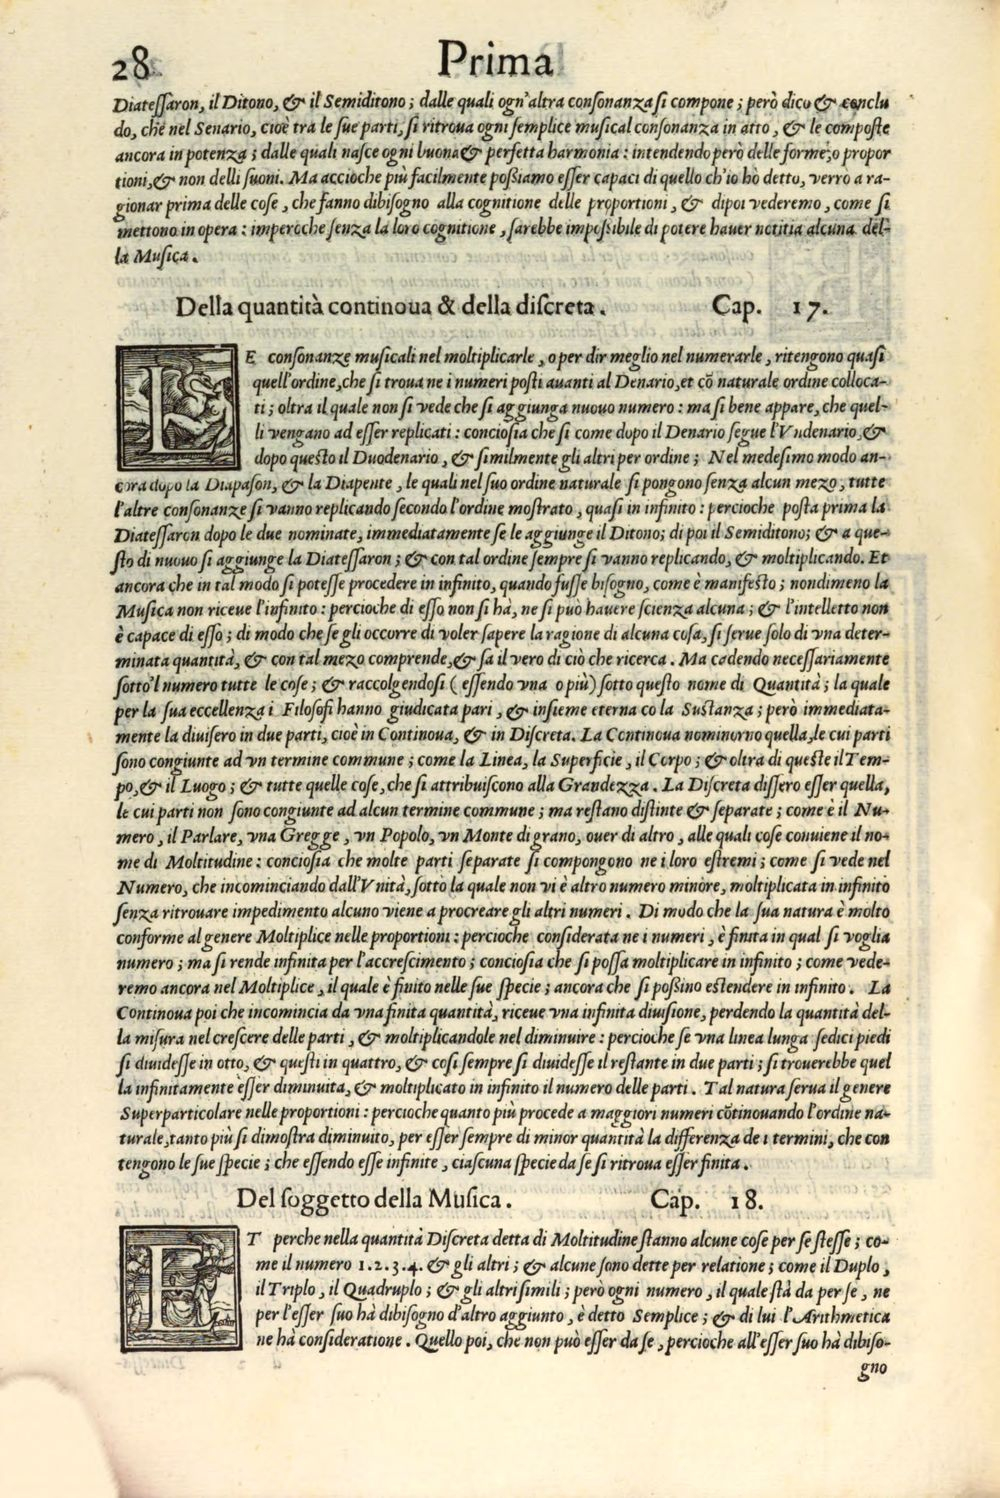 28 Prima
Diateſſaron, il Ditono, & il Semiditono; dalle quali ogn'altra conſonanza ſi compone; però dico & conclu
do, che nel Senario, cioè tra le ſue parti, ſi ritroua ogni ſemplice muſical conſonanza in atto, & le compoſte
ancora in potenza; dalle quali naſce ogni buona & perfetta harmonia: intendendo però delle forme, o propor
tioni, & non delli ſuoni. Ma accioche più facilmente poßiamo eſſer capaci di quello ch'io hò detto, verrò a ra-
gionar prima delle coſe, che fanno dibiſogno alla cognitione delle proportioni, & dipoi vederemo, come ſi
mettono in opera: imperoche ſenza la loro cognitione, ſarebbe impoſsibile di potere hauer notitia alcuna del-
la Muſica.
Della quantità continoua & della diſcreta. Cap. 17.
LE conſonanze muſicali nel moltiplicarle, o per dir meglio nel numerarle, ritengono quaſi
quell'ordine, che ſi troua ne i numeri poſti auanti al Denario, et cō naturale ordine colloca-
ti; oltra il quale non ſi vede che ſi aggiunga nuouo numero: ma ſi bene appare, che quel-
li vengano ad eſſer replicati: concioſia che ſi come dopo il Denario ſegue l'Vndenario, &
dopo queſto il Duodenario, & ſimilmente gli altri per ordine; Nel medeſimo modo an-
cora dopo la Diapaſon, & la Diapente, le quali nel ſuo ordine naturale ſi pongono ſenza alcun mezo, tutte
l'altre conſonanze ſi vanno replicando ſecondo l'ordine moſtrato, quaſi in infinito: percioche poſta prima la
Diateſſaron dopo le due nominate, immediatamente ſe le aggiunge il Ditono; di poi il Semiditono; & a que-
ſto di nuouo ſi aggiunge la Diateſſaron; & con tal ordine ſempre ſi vanno replicando, & moltiplicando. Et
ancora che in tal modo ſi poteſſe procedere in infinito, quando fuſſe biſogno, come è manifeſto; nondimeno la
Muſica non riceue l'infinito: percioche di eſſo non ſi hà, ne ſi può hauere ſcienza alcuna; & l'intelletto non
è capace di eſſo; di modo che ſe gli occorre di voler ſapere la ragione di alcuna coſa, ſi ſerue ſolo di vna deter-
minata quantità, & con tal mezo comprende, & ſa il vero di ciò che ricerca. Ma cadendo neceſſariamente
ſotto'l numero tutte le coſe; & raccolgendoſi (eſſendo vna o più) ſotto queſto nome di Quantità; la quale
per la ſua eccellenza i Filoſofi hanno giudicata pari, & inſieme eterna co la Suſtanza; però immediata-
mente la diuiſero in due parti, cioè in Continoua, & in Diſcreta. La Continoua nominorno quella, le cui parti
ſono congiunte ad vn termine commune; come la Linea, la Superficie, il Corpo; & oltra di queſte il Tem-
po, & il Luogo; & tutte quelle coſe, che ſi attribuiſcono alla Grandezza. La Diſcreta diſſero eſſer quella,
le cui parti non ſono congiunte ad alcun termine commune; ma reſtano diſtinte & ſeparate; come è il Nu-
mero, il Parlare, vna Gregge, vn Popolo, vn Monte di grano, ouer di altro, alle quali coſe conuiene il no-
me di Moltitudine: concioſia che molte parti ſeparate ſi compongono ne i loro eſtremi; come ſi vede nel
Numero, che incominciando dall'Vnità, ſotto la quale non vi è altro numero minore, moltiplicata in infinito
ſenza ritrouare impedimento alcuno viene a procreare gli altri numeri. Di modo che la ſua natura è molto
conforme al genere Moltiplice nelle proportioni: percioche conſiderata ne i numeri, è finita in qual ſi voglia
numero; ma ſi rende infinita per l'accreſcimento; concioſia che ſi poſſa moltiplicare in infinito; come vede-
remo ancora nel Moltiplice, il quale è finito nelle ſue ſpecie; ancora che ſi poßino eſtendere in infinito. La
Continoua poi che incomincia da vna finita quantità, riceue vna infinita diuiſione, perdendo la quantità del-
la miſura nel creſcere delle parti, & moltiplicandole nel diminuire: percioche ſe vna linea lunga ſedici piedi
ſi diuideſſe in otto, & queſti in quattro, & coſi ſempre ſi diuideſſe il reſtante in due parti; ſi trouerebbe quel
la infinitamente eſſer diminuita, & moltiplicato in infinito il numero delle parti. Tal natura ſerua il genere
Superparticolare nelle proportioni: percioche quanto più procede a maggiori numeri cōtinouando l'ordine na-
turale, tanto più ſi dimoſtra diminuito, per eſſer ſempre di minor quantità la differenza de i termini, che con
tengono le ſue ſpecie; che eſſendo eſſe infinite, ciaſcuna ſpecie da ſe ſi ritroua eſſer finita.
Del ſoggetto della Muſica. Cap. 18.
ET perche nella quantità Diſcreta detta di Moltitudine ſtanno alcune coſe per ſe ſteſſe; co-
me il numero 1.2.3.4. & gli altri; & alcune ſono dette per relatione; come il Duplo,
il Triplo, il Quadruplo; & gli altri ſimili; però ogni numero, il quale ſtà da per ſe, ne
per l'eſſer ſuo hà dibiſogno d'altro aggiunto, è detto Semplice; & di lui l'Arithmetica
ne hà conſideratione. Quello poi, che non può eſſer da ſe, percioche all'eſſer ſuo hà dibiſo-
gno